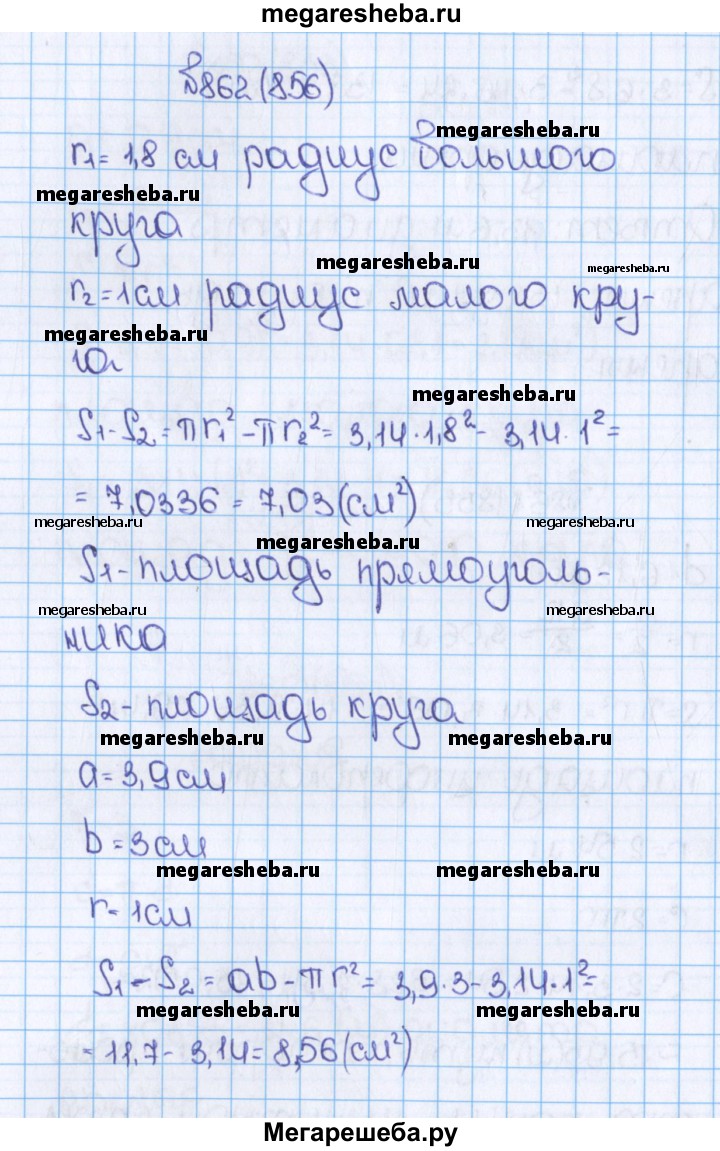 megaresheba.ru
№862 (856)
megaresheba.ru
r₁ = 1,8 см радиус большого
megaresheba.ru
круга
megaresheba.ru
megaresheba.ru
r₂ = 1 см радиус малого кру-
megaresheba.ru
га
megaresheba.ru
S₁ - S₂ = πr₁² - πr₂² = 3,14 · 1,8² - 3,14 · 1² =
= 7,0336 = 7,03 (см²)
megaresheba.ru
megaresheba.ru
megaresheba.ru
S₁ - площадь прямоуголь-
megaresheba.ru
megaresheba.ru
ника
S₂ - площадь круга
megaresheba.ru
megaresheba.ru
a = 3,9 см
b = 3 см
megaresheba.ru
megaresheba.ru
r = 1 см
S₁ - S₂ = ab - πr² = 3,9 · 3 - 3,14 · 1² =
megaresheba.ru
megaresheba.ru
= 11,7 - 3,14 = 8,56 (см²)
Мегарешеба.ру